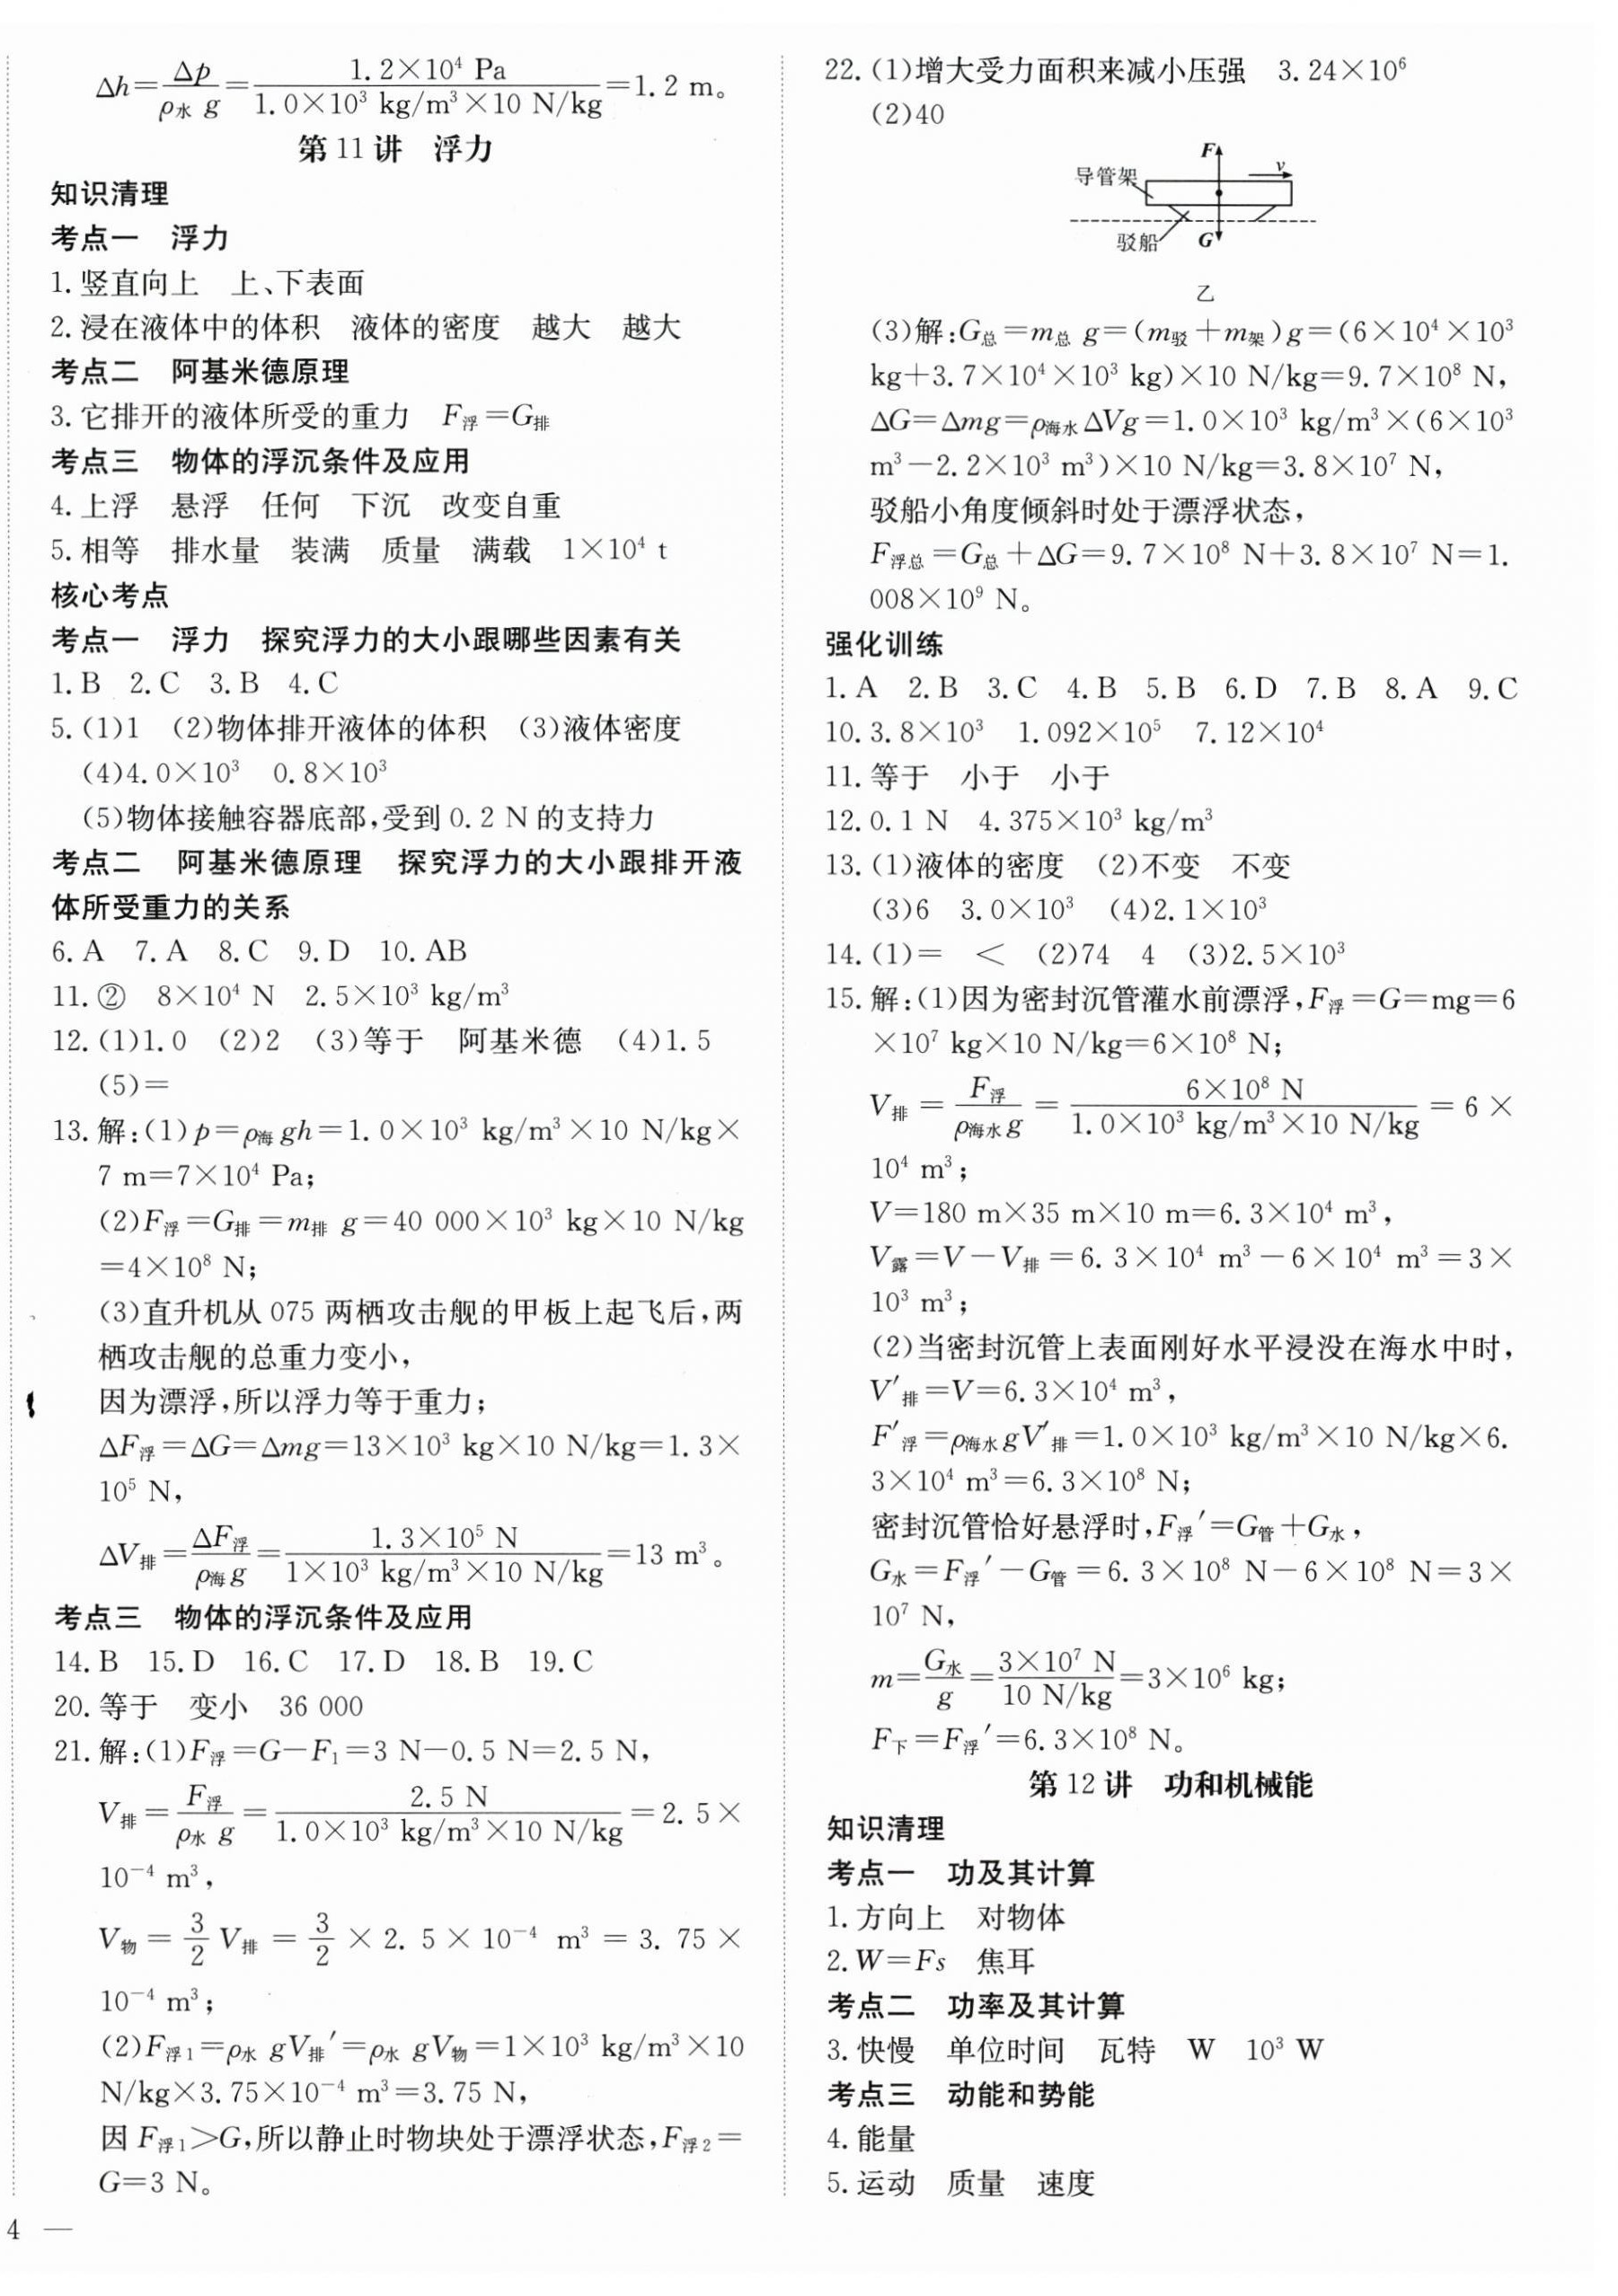 Δh=Δp/ρ水 g=1.2×10⁴ Pa/1.0×10³ kg/m³×10 N/kg=1.2 m。
第11讲 浮力
知识清理
考点一 浮力
1.竖直向上 上、下表面
2.浸在液体中的体积 液体的密度 越大 越大
考点二 阿基米德原理
3.它排开的液体所受的重力 F浮=G排
考点三 物体的浮沉条件及应用
4.上浮 悬浮 任何 下沉 改变自重
5.相等 排水量 装满 质量 满载 1×10⁴ t
核心考点
考点一 浮力 探究浮力的大小跟哪些因素有关
1.B 2.C 3.B 4.C
5.(1)1 (2)物体排开液体的体积 (3)液体密度
(4)4.0×10³ 0.8×10³
(5)物体接触容器底部,受到0.2 N的支持力
考点二 阿基米德原理 探究浮力的大小跟排开液
体所受重力的关系
6.A 7.A 8.C 9.D 10.AB
11.② 8×10⁴ N 2.5×10³ kg/m³
12.(1)1.0 (2)2 (3)等于 阿基米德 (4)1.5
(5)=
13.解:(1)p=ρ海gh=1.0×10³ kg/m³×10 N/kg×
7 m=7×10⁴ Pa;
(2)F浮=G排=m排 g=40 000×10³ kg×10 N/kg
=4×10⁸ N;
(3)直升机从075两栖攻击舰的甲板上起飞后,两
栖攻击舰的总重力变小,
因为漂浮,所以浮力等于重力;
ΔF浮=ΔG=Δmg=13×10³ kg×10 N/kg=1.3×
10⁵ N,
ΔV排=ΔF浮/ρ海g=1.3×10⁵ N/1×10³ kg/m³×10 N/kg=13 m³。
考点三 物体的浮沉条件及应用
14.B 15.D 16.C 17.D 18.B 19.C
20.等于 变小 36 000
21.解:(1)F浮=G-F₁=3 N-0.5 N=2.5 N,
V排=F浮/ρ水 g=2.5 N/1.0×10³ kg/m³×10 N/kg=2.5×
10⁻⁴ m³,
V物=3/2 V排=3/2×2.5×10⁻⁴ m³=3.75×
10⁻⁴ m³;
(2)F浮1=ρ水 gV排′=ρ水 gV物=1×10³ kg/m³×10
N/kg×3.75×10⁻⁴ m³=3.75 N,
因F浮1>G,所以静止时物块处于漂浮状态,F浮2=
G=3 N。
4 —
22.(1)增大受力面积来减小压强 3.24×10⁶
(2)40
F
v
导管架
驳船
G
乙
(3)解:G总=m总 g=(m驳+m架)g=(6×10⁴×10³
kg+3.7×10⁴×10³ kg)×10 N/kg=9.7×10⁸ N,
ΔG=Δmg=ρ海水ΔVg=1.0×10³ kg/m³×(6×10³
m³-2.2×10³ m³)×10 N/kg=3.8×10⁷ N,
驳船小角度倾斜时处于漂浮状态,
F浮总=G总+ΔG=9.7×10⁸ N+3.8×10⁷ N=1.
008×10⁹ N。
强化训练
1.A 2.B 3.C 4.B 5.B 6.D 7.B 8.A 9.C
10.3.8×10³ 1.092×10⁵ 7.12×10⁴
11.等于 小于 小于
12.0.1 N 4.375×10³ kg/m³
13.(1)液体的密度 (2)不变 不变
(3)6 3.0×10³ (4)2.1×10³
14.(1)= < (2)74 4 (3)2.5×10³
15.解:(1)因为密封沉管灌水前漂浮,F浮=G=mg=6
×10⁷ kg×10 N/kg=6×10⁸ N;
V排=F浮/ρ海水g=6×10⁸ N/1.0×10³ kg/m³×10 N/kg=6×
10⁴ m³;
V=180 m×35 m×10 m=6.3×10⁴ m³,
V露=V-V排=6.3×10⁴ m³-6×10⁴ m³=3×
10³ m³;
(2)当密封沉管上表面刚好水平浸没在海水中时,
V′排=V=6.3×10⁴ m³,
F′浮=ρ海水gV′排=1.0×10³ kg/m³×10 N/kg×6.
3×10⁴ m³=6.3×10⁸ N;
密封沉管恰好悬浮时,F浮′=G管+G水,
G水=F浮′-G管=6.3×10⁸ N-6×10⁸ N=3×
10⁷ N,
m=G水/g=3×10⁷ N/10 N/kg=3×10⁶ kg;
F下=F浮′=6.3×10⁸ N。
第12讲 功和机械能
知识清理
考点一 功及其计算
1.方向上 对物体
2.W=Fs 焦耳
考点二 功率及其计算
3.快慢 单位时间 瓦特 W 10³ W
考点三 动能和势能
4.能量
5.运动 质量 速度